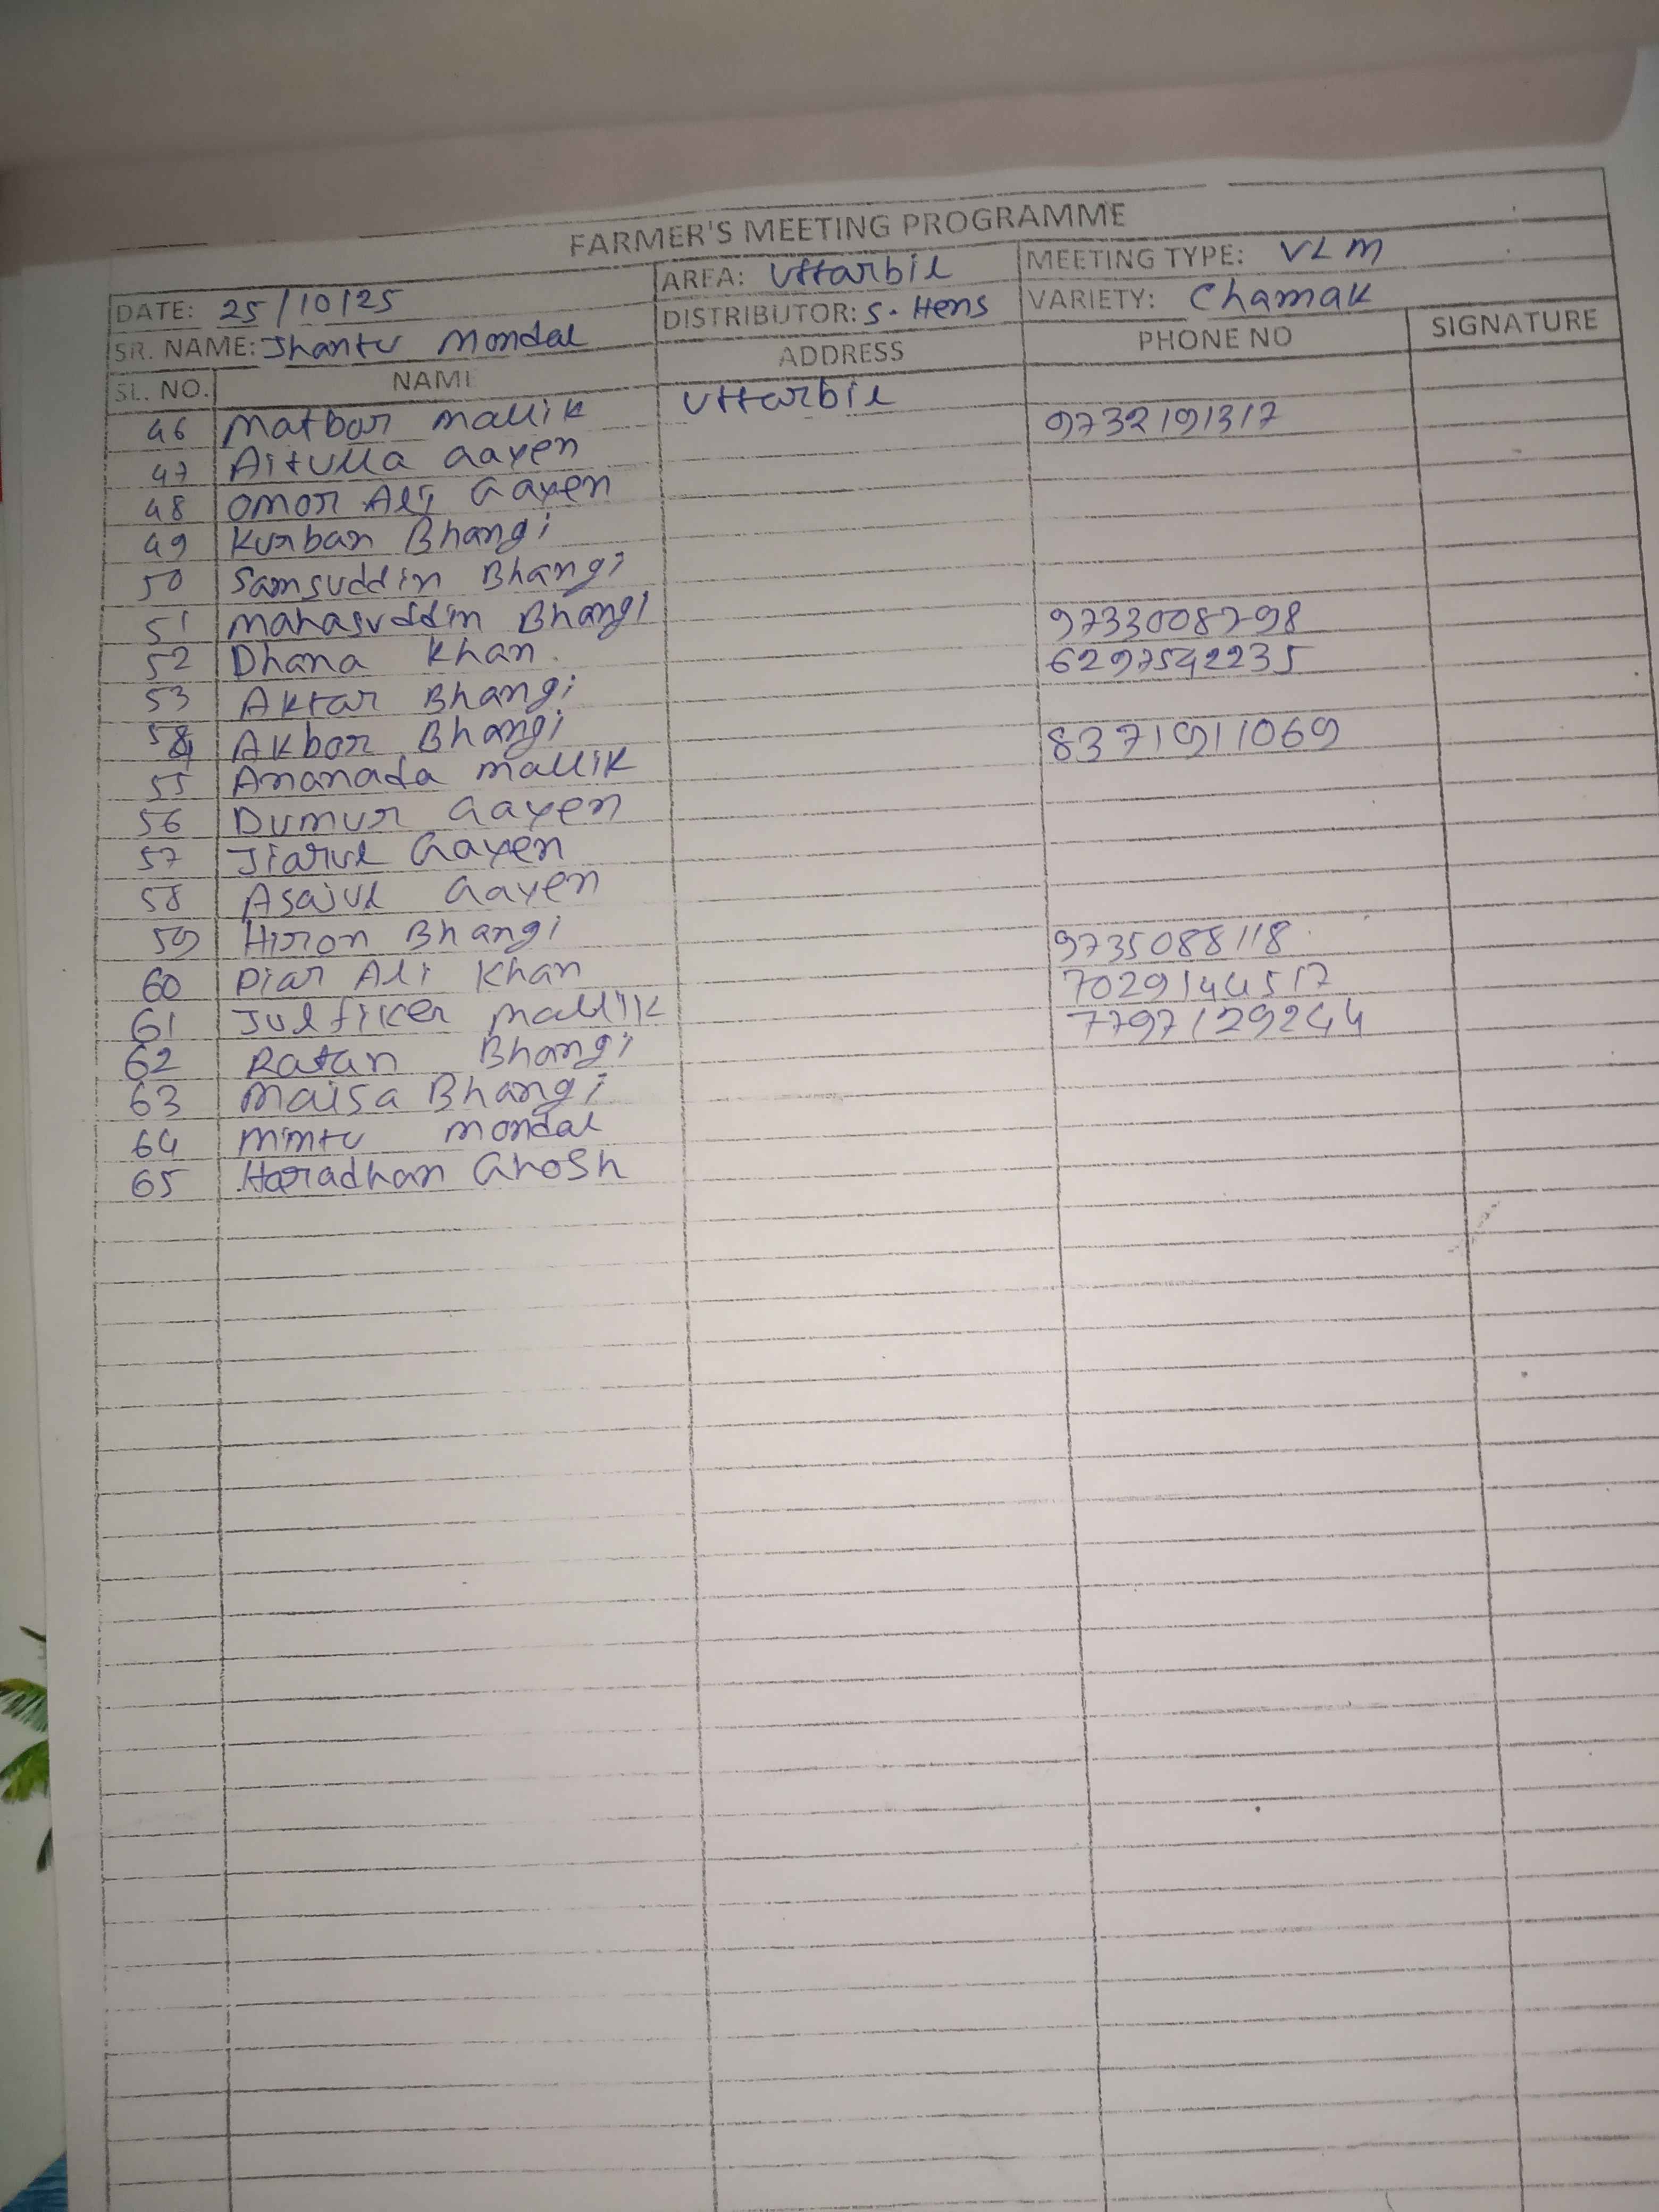 FARMER'S MEETING PROGRAMME
DATE: 25/10/25 AREA: Uttarbil MEETING TYPE: VLM
SR. NAME: Jhantu Mondal DISTRIBUTOR: S. Hens VARIETY: Chamak
SL. NO. NAME ADDRESS PHONE NO SIGNATURE
46 Matbor Mallik Uttarbil 9732191317
47 Aitulla Gayen
48 Omor Ali Gayen
49 Kurban Bhangi
50 Samsuddin Bhangi
51 Mahasuddin Bhangi 9733008798
52 Dhana Khan 6297542235
53 Aktar Bhangi
54 Akbor Bhangi 8371911069
55 Ananada Mallik
56 Dumur Gayen
57 Jiarul Gayen
58 Asajul Gayen
59 Hiron Bhangi 9735088118
60 Piar Ali Khan 7029144517
61 Julfiker Mallik 7797129244
62 Ratan Bhangi
63 Maisa Bhangi
64 Mintu Mondal
65 Haradhan Ghosh